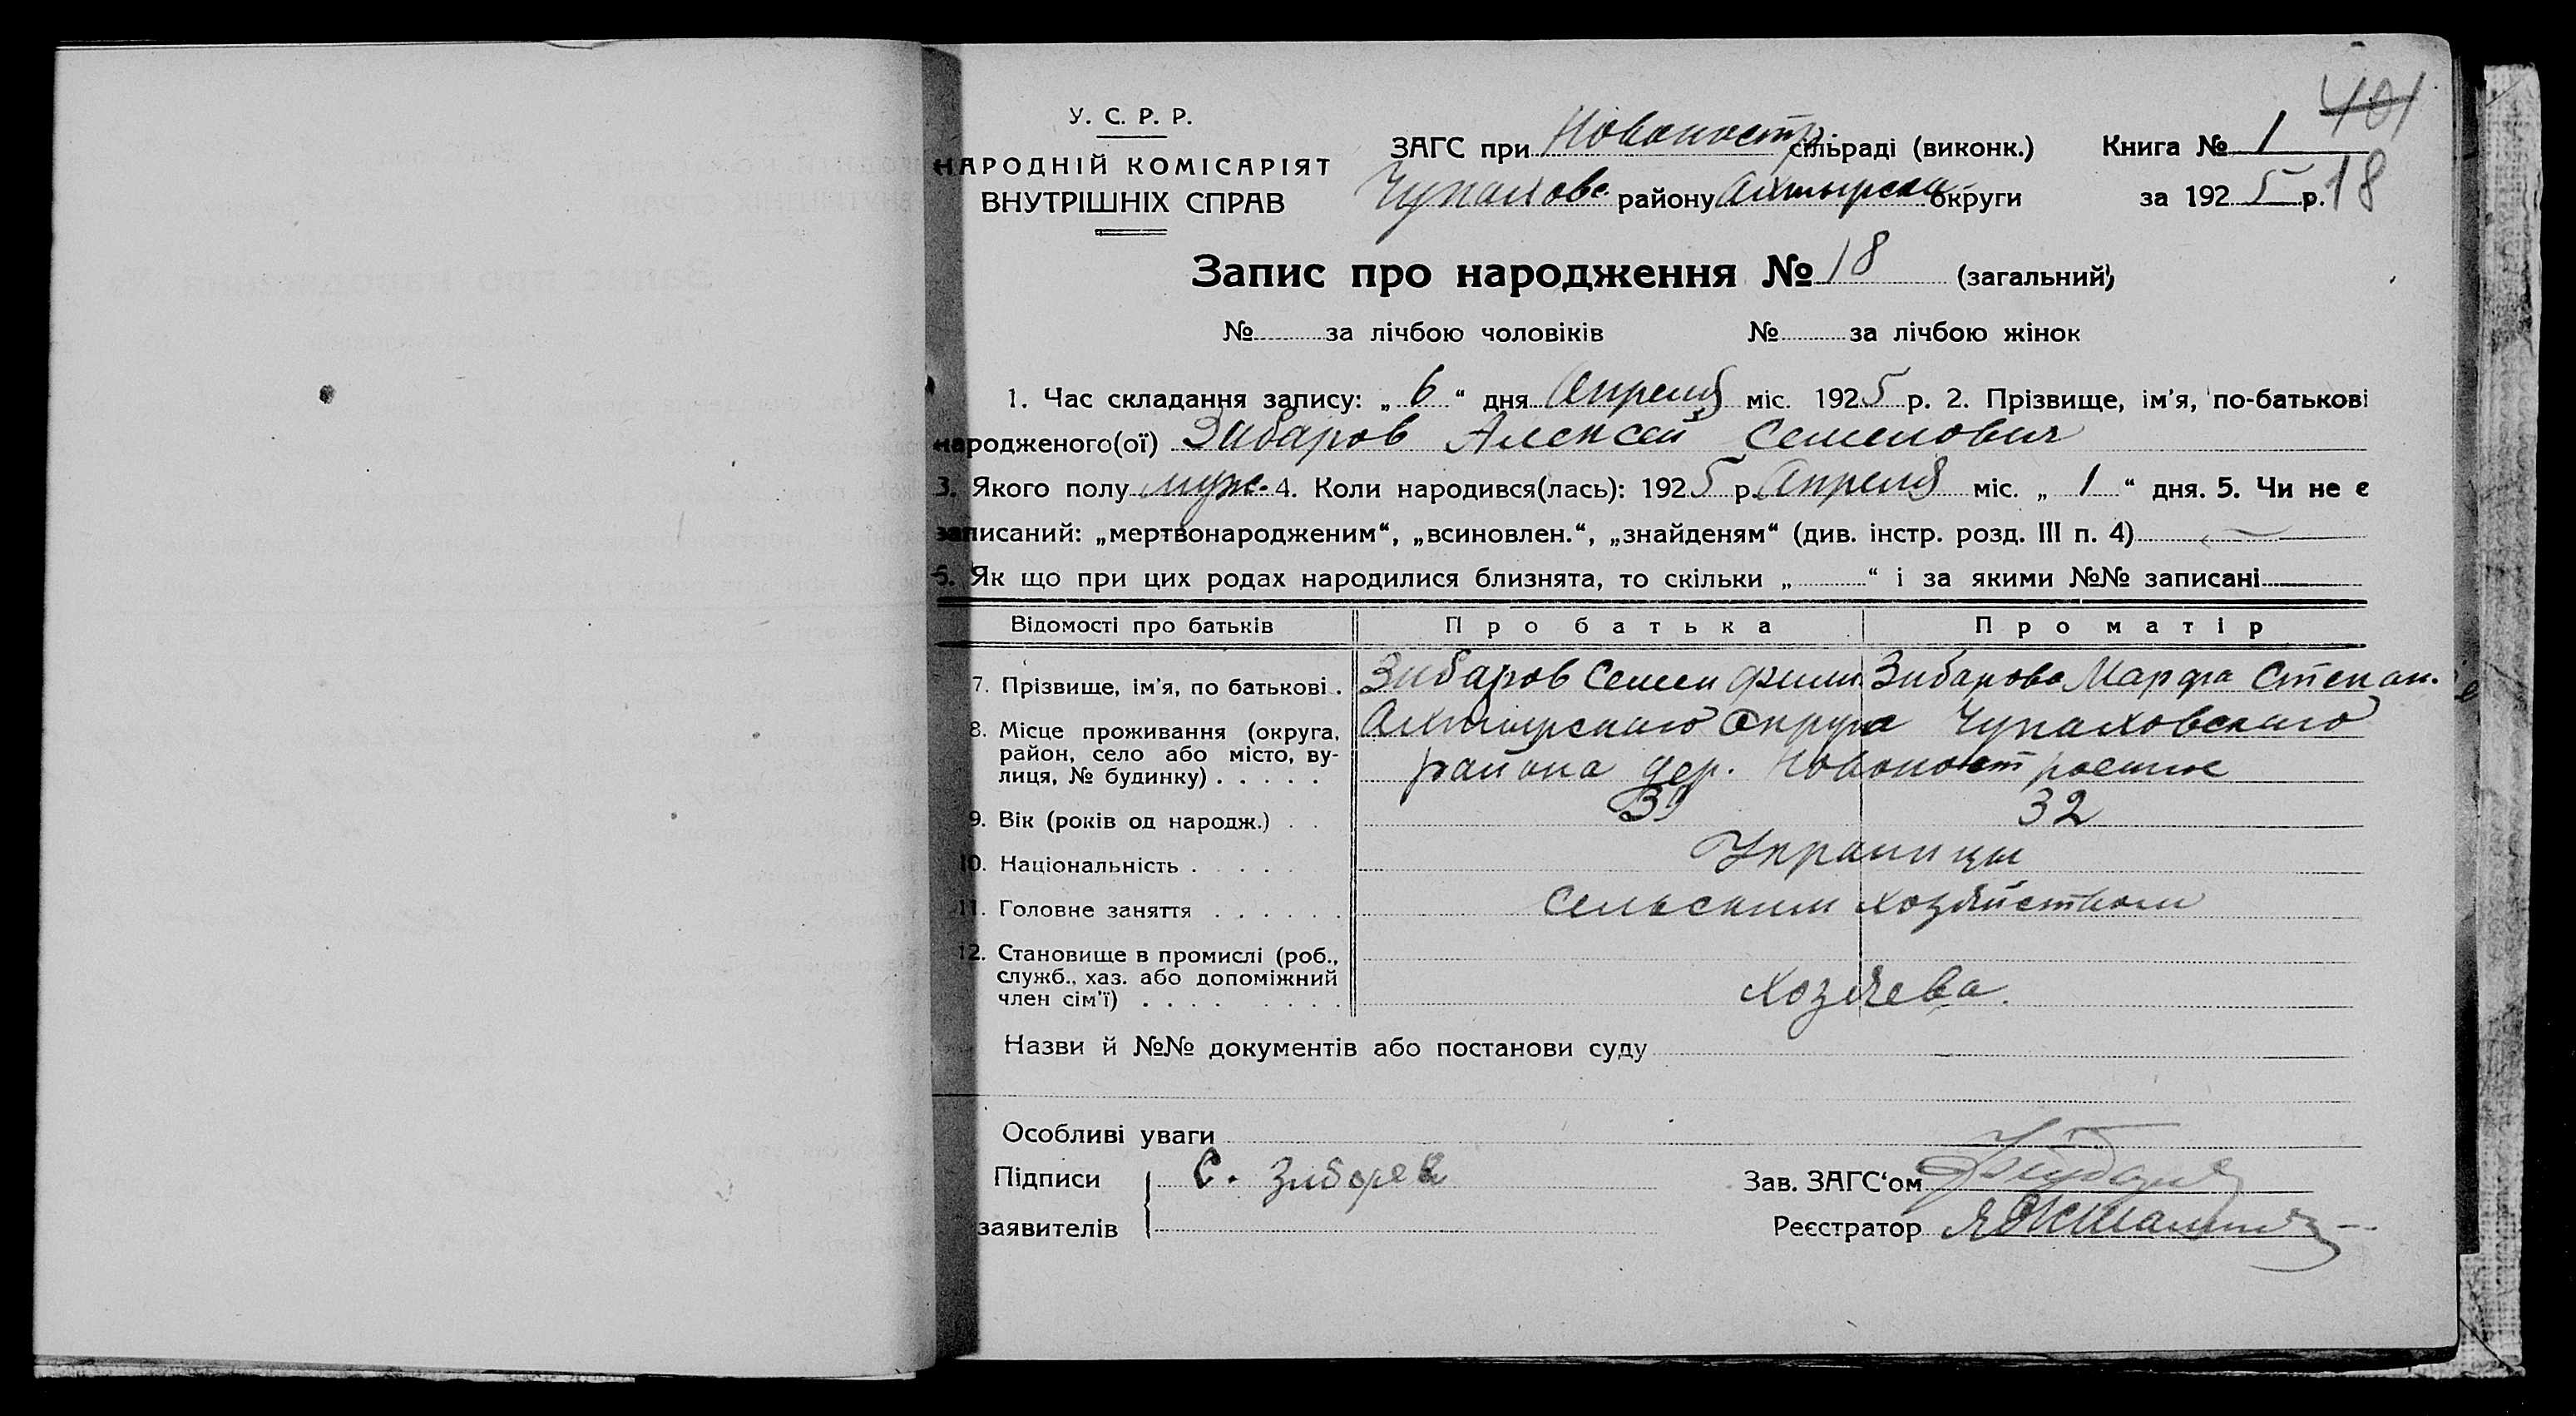 401
У. С. Р. Р.
НАРОДНІЙ КОМІСАРІЯТ
ВНУТРІШНІХ СПРАВ
ЗАГС при Новопостр сільраді (виконк.) Книга № 1
Чупахове. району Ахтырска округи за 1925 р. 18
Запис про народження № 18 (загальний)
№ за лічбою чоловіків № за лічбою жінок
1. Час складання запису: „ 6 “ дня Апреля міс. 1925 р. 2. Прізвище, ім'я, по-батькові
народженого(ої) Зибаров Алексей Семенович
3. Якого полу муж. 4. Коли народився(лась): 1925 р. Апреля міс. „ 1 “ дня. 5. Чи не є
записаний: „мертвонародженим“, „всиновлен.“, „знайденям“ (див. інстр. розд. III п. 4)
6. Як що при цих родах народилися близнята, то скільки „ “ і за якими №№ записані
Відомості про батьків Про батька Про матір
7. Прізвище, ім'я, по батькові . Зибаров Семен Фили Зибарова Марфа Степан.
8. Місце проживання (округа, район, село або місто, вулиця, № будинку) . . . . . Ахтырскаго Округа Чупаховскаго
района дер. Новопостроенье
9. Вік (років од народж.) . . 32
10. Національність . . . . . Украинцы
11. Головне заняття . . . . . . Сельским хозяйством
12. Становище в промислі (роб.,
служб., хаз. або допоміжний
член сім'ї) . . . . . . . . Хозяева.
Назви й №№ документів або постанови суду
Особливі уваги
Підписи С. Зиборев Зав. ЗАГС‘ом
заявителів Реєстратор